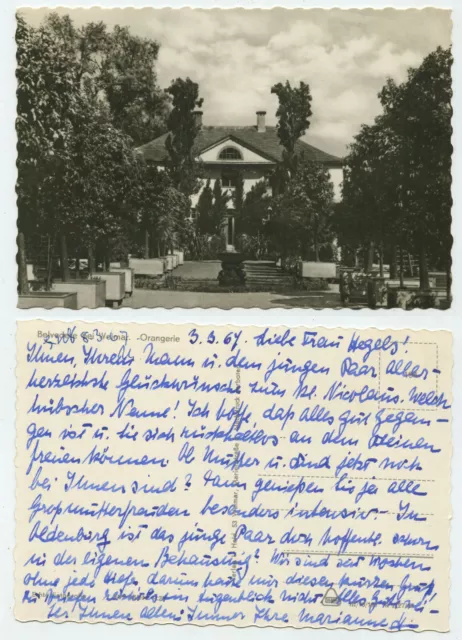 Belvedere bei Weimar. -Orangerie
3.3.67. Liebe Frau Hegels!
Ihnen, Ihrem Mann u. dem jungen Paar Aller-
herzlichste Glückwünsche zum kl. Nicolaus. Welch
hübscher Name! Ich hoffe daß alles gut gegan-
gen ist u. Sie sich an dem Kleinen
freuen können. Ob Mutter u. Kind jetzt noch
bei Ihnen sind? Dann genießen Sie ja alle
Großmutterfreuden besonders intensiv. In
Oldenburg ist das junge Paar doch hoffentl. schon
in der eigenen Behausung? Wir sind seit Wochen
ohne jede darum heute nur diesen kurzen Gruß
zu mehr Augenblick nicht. Alles Gute
Ihnen allen! Immer Ihre Marianne